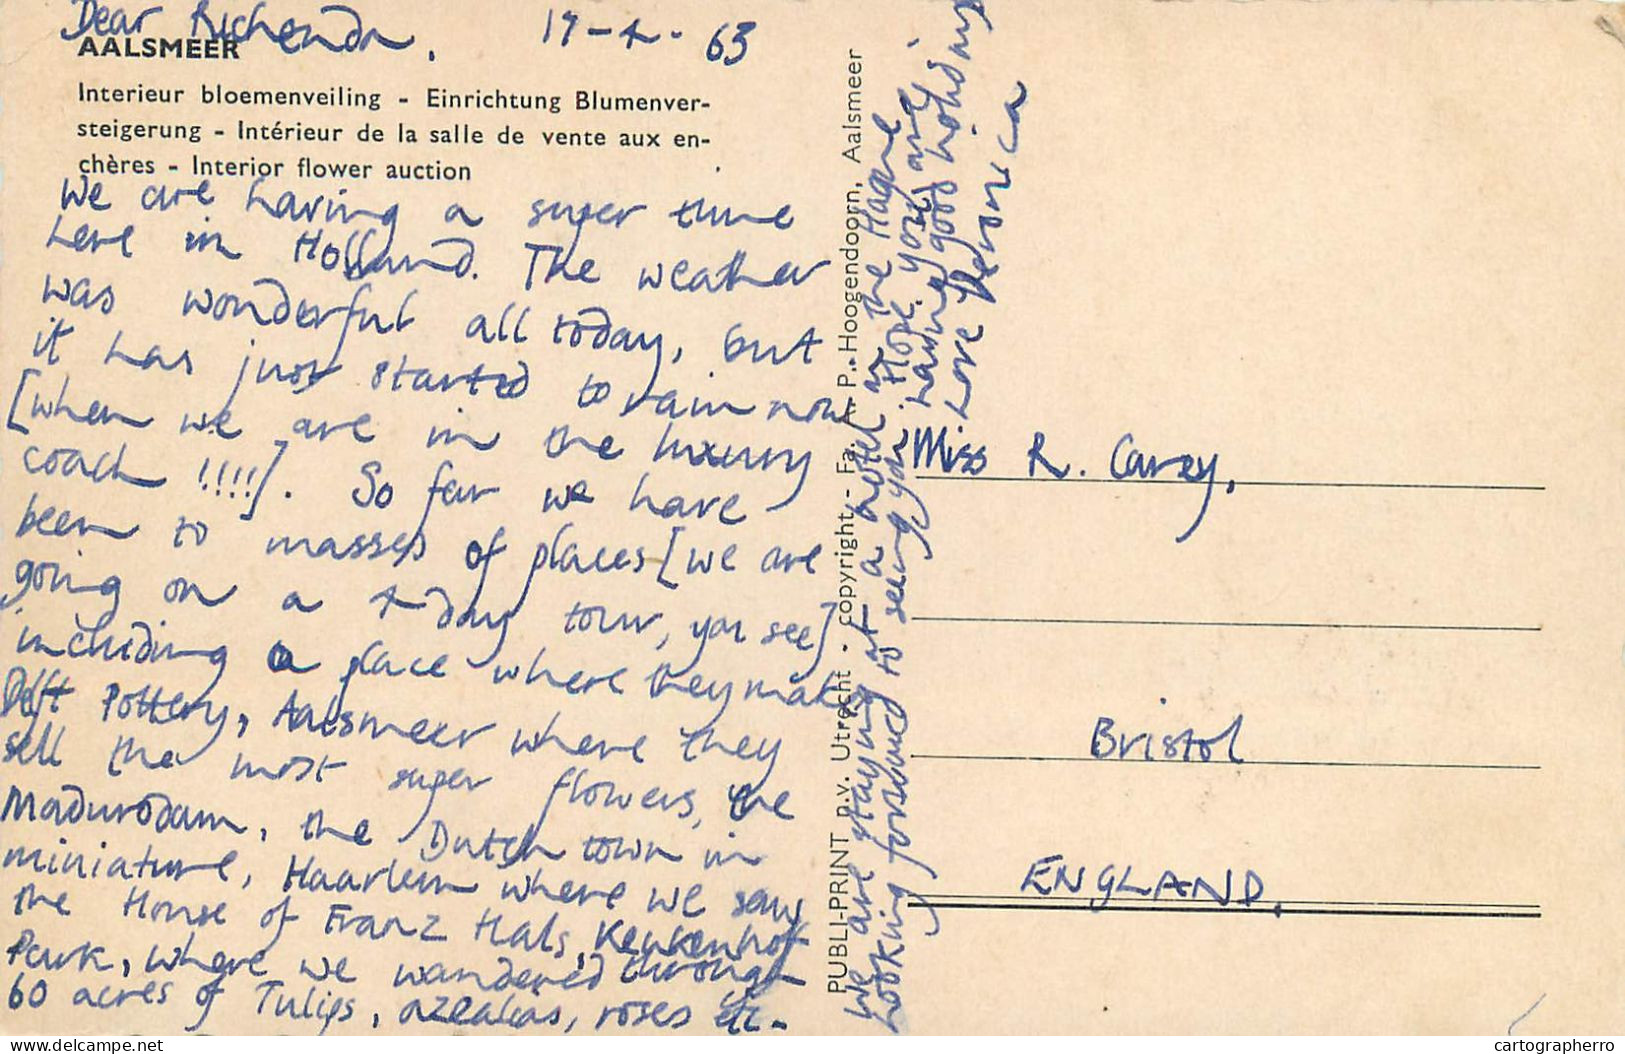 Dear Richenda,
17-4-63
AALSMEER
Interieur bloemenveiling - Einrichtung Blumenver-
steigerung - Intérieur de la salle de vente aux en-
chères - Interior flower auction
We are having a super time
here in Holland. The weather
was wonderful all today, but
it has just started to rain now
[when we are in the luxury
coach !!!!]. So far we have
been to masses of places [we are
going on a 4-day tour, you see]
including a place where they make
Delft Pottery, Aalsmeer where they
sell the most super flowers, the
Madurodam, the Dutch town in
miniature, Haarlem where we saw
the House of Franz Hals, Keukenhof
Park, where we wandered through
60 acres of Tulips, azealias, roses etc.
PUBLI-PRINT n.v. Utrecht - copyright - Fa. A. P. Hoogendoorn, Aalsmeer
We are staying at a hotel in The Hague
Looking forward to seeing you. Hope you are
having good holiday
Love Veronica
Miss R. Carey,
Bristol
ENGLAND.
www.delcampe.net
cartographerro